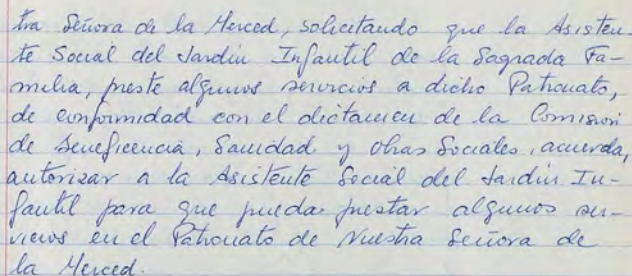 tra Señora de la Merced, solicitando que la Asisten-
te Social del Jardin Infautil de la Sagrada Fa-
milia, preste algunos servicios a dicho Patronato,
de conformidad con el dictamen de la Comision
de Beneficencia, Sanidad y obras Sociales, acuerda,
autorizar a la Asistente Social del Jardin In-
fautil para que pueda prestar algunos ser-
vicios en el Patronato de Nuestra Señora de
la Merced.